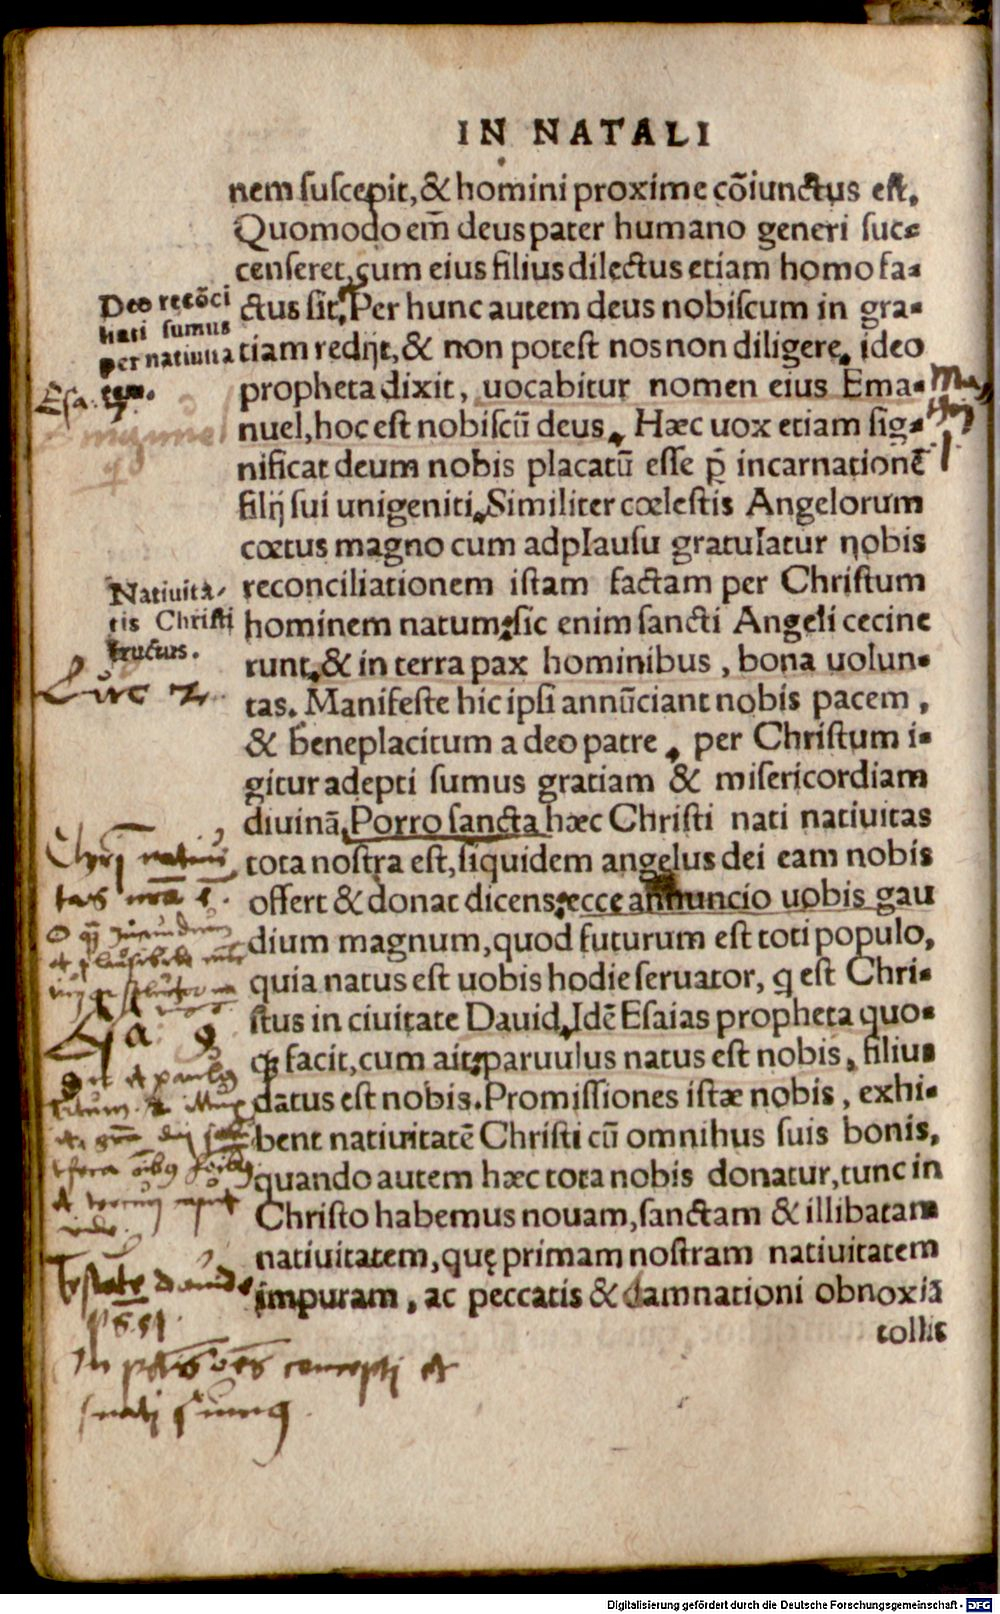 IN NATALI
nem suscepit, & homini proxime cōiunctus est.
Quomodo em̄ deus pater humano generi suc-
censeret, cum eius filius dilectus etiam homo fa-
ctus sit. Per hunc autem deus nobiscum in gra-
tiam redijt, & non potest nos non diligere, ideo
propheta dixit, uocabitur nomen eius Ema-
nuel, hoc est nobiscū deus. Hæc uox etiam sig-
nificat deum nobis placatū esse p̱ incarnationē
filij sui unigeniti. Similiter cœlestis Angelorum
cœtus magno cum adplausu gratulatur nobis
reconciliationem istam factam per Christum
hominem natum: sic enim sancti Angeli cecine
runt, & in terra pax hominibus, bona uolun-
tas. Manifeste hic ipsi annūciant nobis pacem,
& beneplacitum a deo patre, per Christum i-
gitur adepti sumus gratiam & misericordiam
diuinā, Porro sancta hæc Christi nati natiuitas
tota nostra est, siquidem angelus dei eam nobis
offert & donat dicens: ecce annuncio uobis gau
dium magnum, quod futurum est toti populo,
quia natus est uobis hodie seruator, q est Chri-
stus in ciuitate Dauid, Idē Esaias propheta quo-
qꝫ facit, cum ait: paruulus natus est nobis, filius
datus est nobis. Promissiones istæ nobis, exhi-
bent natiuitatē Christi cū omnibus suis bonis,
quando autem hæc tota nobis donatur, tunc in
Christo habemus nouam, sanctam & illibatam
natiuitatem, quę primam nostram natiuitatem
impuram, ac peccatis & damnationi obnoxiā
tollit
Deo recōci
liati sumus
per natiuita
tem.
Esa. 7.
Mat
1
Natiuita-
tis Christi
fructus.
Luc 2.
Chri natiui
tas nrā ē.
Esa: 9
ps. 51.
In pctis oēs concepti et
nati sumus.